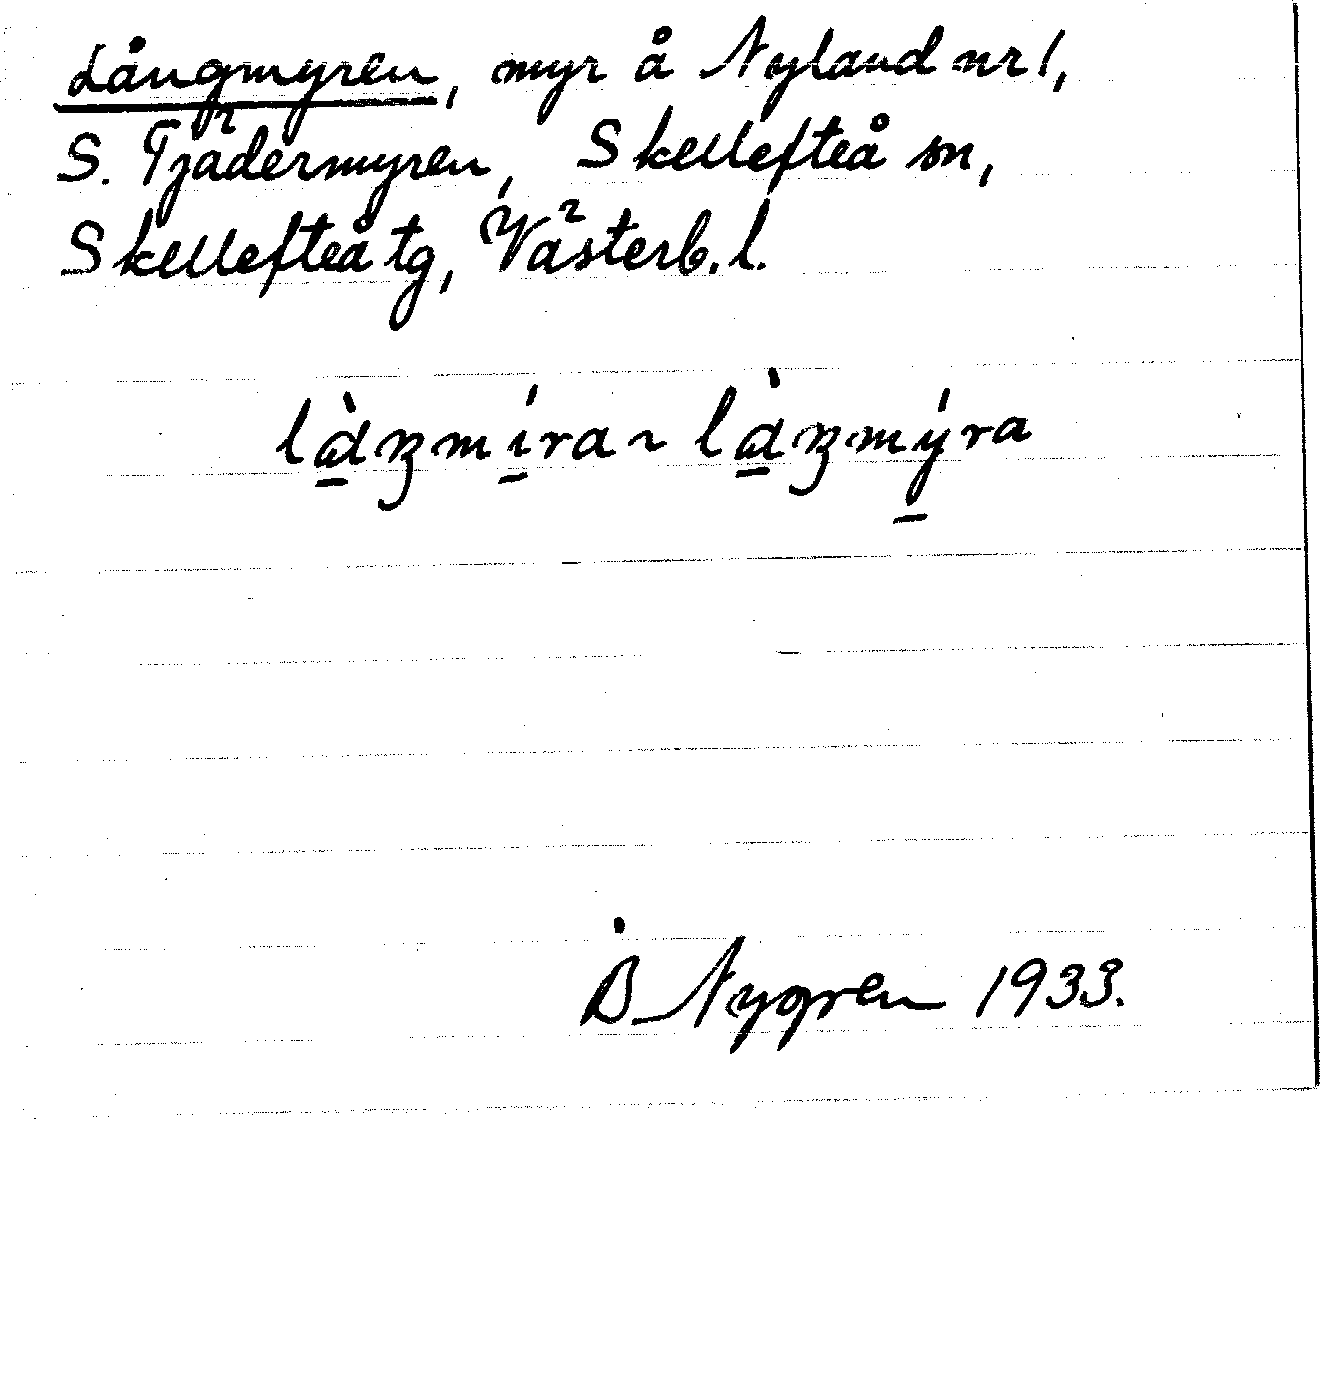 Långmyren, myr å Nyland nr 1,
S. Tjädermyren, Skellefteå sn,
Skellefteå tg, Västerb. l.
B Nygren 1933.